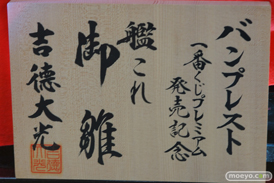 バンプレスト
一番くじプレミアム
発売記念
艦これ
御雛
吉徳大光
moeyo.com